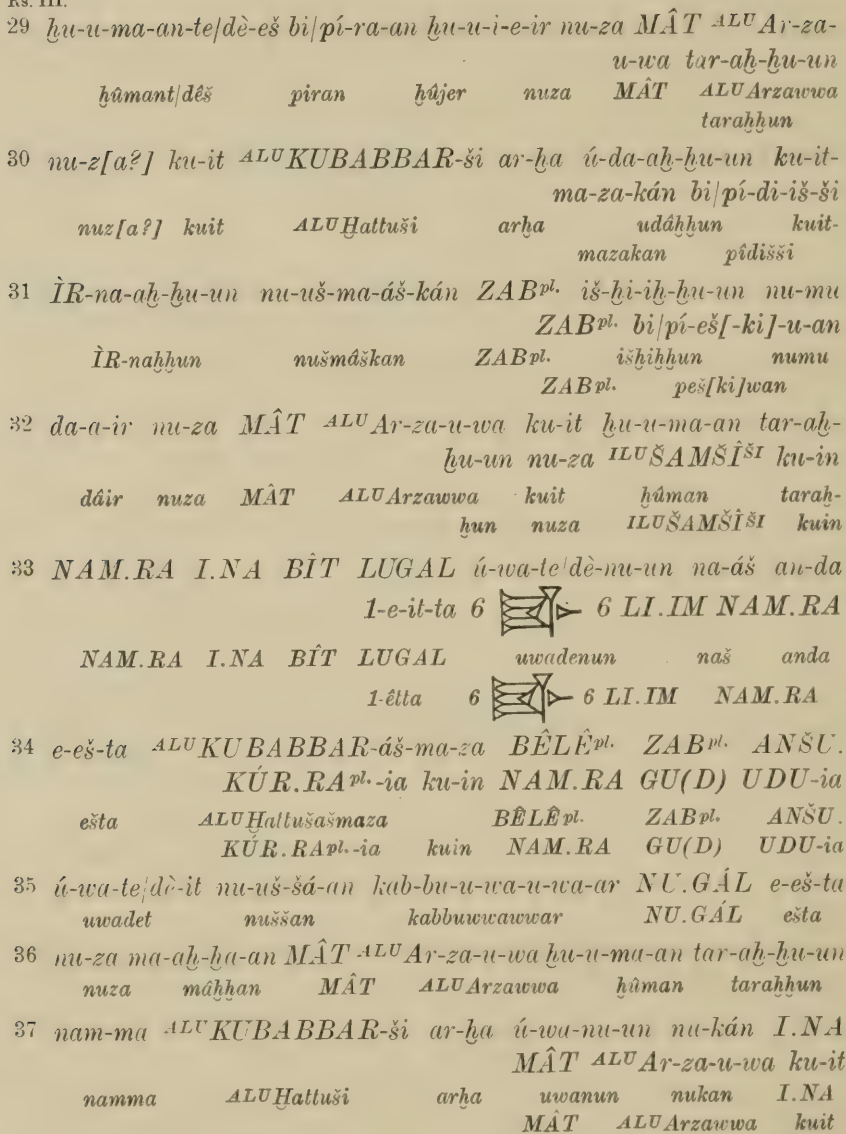 Rs. III.
29 ḫu-u-ma-an-te/dè-eš bi/pí-ra-an ḫu-u-i-e-ir nu-za MÂT ALU Ar-za-
u-wa tar-aḫ-ḫu-un
ḫûmant/dêš piran ḫûjer nuza MÂT ALU Arzawwa
taraḫḫun
30 nu-z[a?] ku-it ALU KUBABBAR-ši ar-ḫa ú-da-aḫ-ḫu-un ku-it-
ma-za-kán bi/pí-di-iš-ši
nuz[a?] kuit ALU Ḫattuši arḫa udâḫḫun kuit-
mazakan pîdišši
31 ÌR-na-aḫ-ḫu-un nu-uš-ma-áš-kán ZAB pl. iš-ḫi-iḫ-ḫu-un nu-mu
ZAB pl. bi/pí-eš[-ki]-u-an
ÌR-naḫḫun nušmâškan ZAB pl. išḫiḫḫun numu
ZAB pl. peš[ki]wan
32 da-a-ir nu-za MÂT ALU Ar-za-u-wa ku-it ḫu-u-ma-an tar-aḫ-
ḫu-un nu-za ILU ŠAMŠÎ ŠI ku-in
dâir nuza MÂT ALU Arzawwa kuit ḫûman taraḫ-
ḫun nuza ILU ŠAMŠÎ ŠI kuin
33 NAM.RA I.NA BÎT LUGAL ú-wa-te/dè-nu-un na-áš an-da
1-e-it-ta 6 6 LI.IM NAM.RA
NAM.RA I.NA BÎT LUGAL uwadenun naš anda
1-êtta 6 6 LI.IM NAM.RA
34 e-eš-ta ALU KUBABBAR-áš-ma-za BÊLÊ pl. ZAB pl. ANŠU.
KÚR.RA pl.-ia ku-in NAM.RA GU(D) UDU-ia
ešta ALU Ḫattušašmaza BÊLÊ pl. ZAB pl. ANŠU.
KÚR.RA pl.-ia kuin NAM.RA GU(D) UDU-ia
35 ú-wa-te/dè-it nu-uš-šá-an kab-bu-u-wa-u-wa-ar NU.GÁL e-eš-ta
uwadet nuššan kabbuwwawwar NU.GÁL ešta
36 nu-za ma-aḫ-ḫa-an MÂT ALU Ar-za-u-wa ḫu-u-ma-an tar-aḫ-ḫu-un
nuza mâḫḫan MÂT ALU Arzawwa ḫûman taraḫḫun
37 nam-ma ALU KUBABBAR-ši ar-ḫa ú-wa-nu-un nu-kán I.NA
MÂT ALU Ar-za-u-wa ku-it
namma ALU Ḫattuši arḫa uwanun nukan I.NA
MÂT ALU Arzawwa kuit